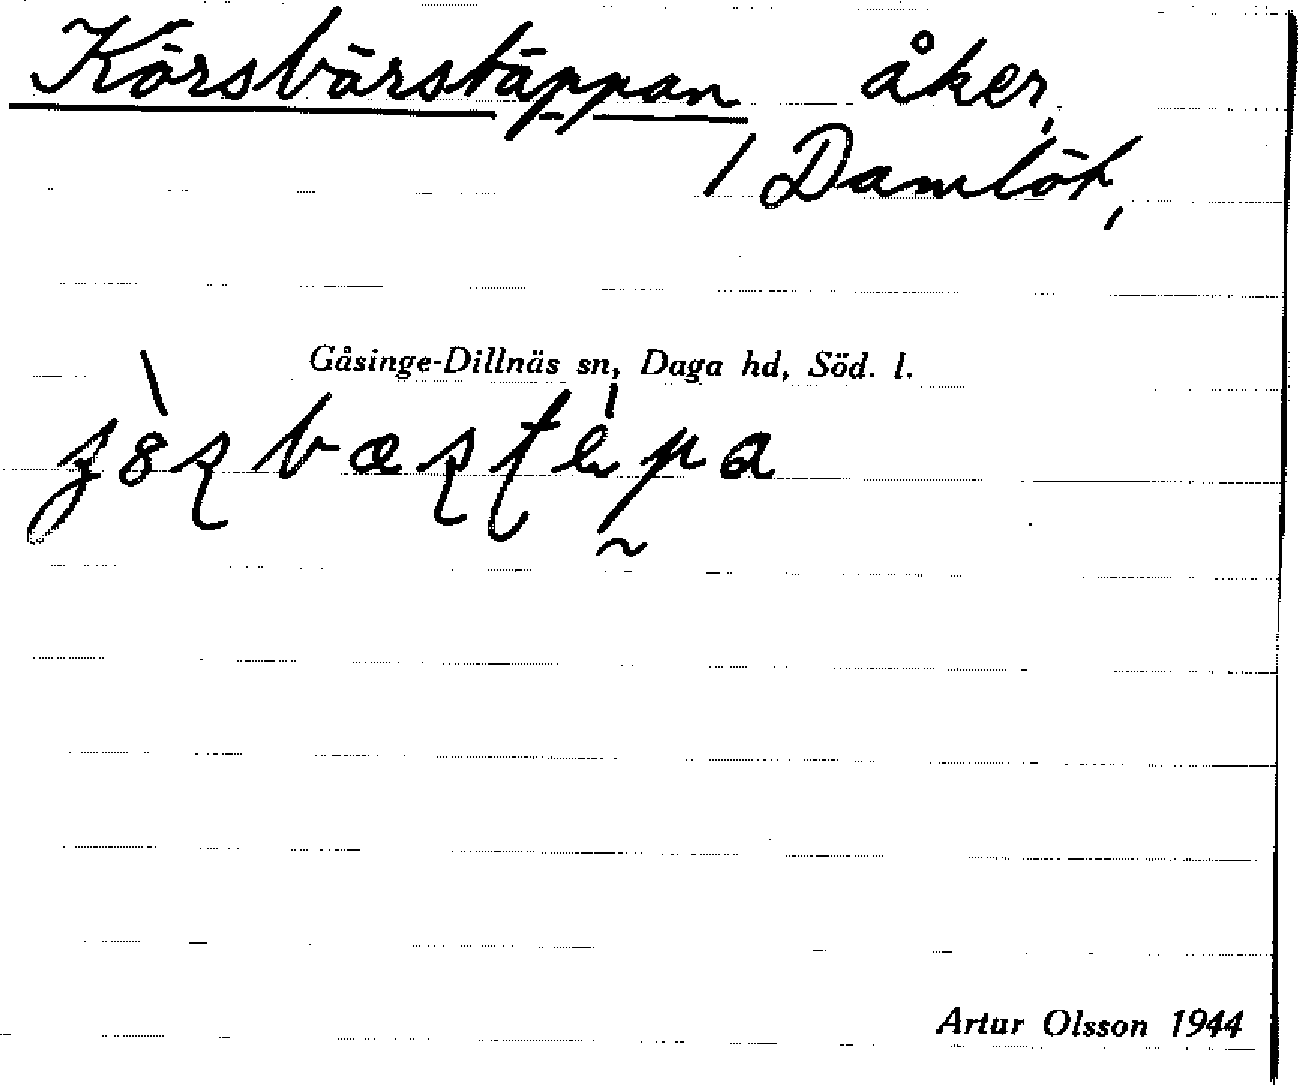 Körsbärstäppan åker,
1 Damlöt,
Gåsinge-Dillnäs sn, Daga hd, Söd. l.
Artur Olsson 1944